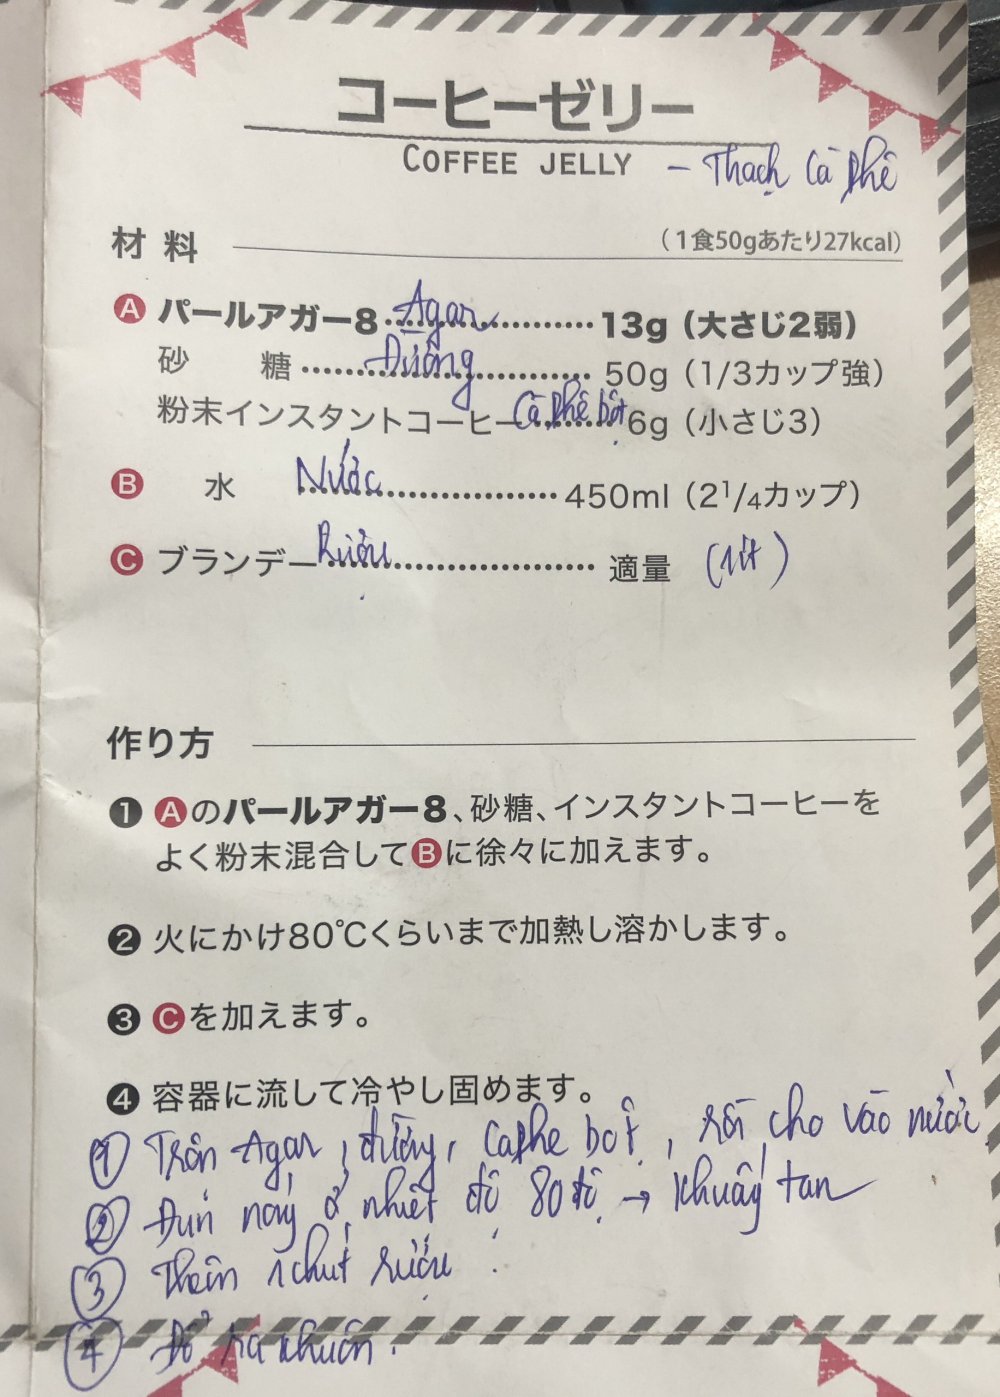 コーヒーゼリー
COFFEE JELLY - Thạch Cà phê
材料 (1食50gあたり27kcal)
A パールアガー8 Agar 13g (大さじ2弱)
砂糖 Đường 50g (1/3カップ強)
粉末インスタントコーヒー Cà phê bột 6g (小さじ3)
B 水 Nước 450ml (2 1/4カップ)
C ブランデー Rượu 適量 (1 ít)
作り方
1 Aのパールアガー8、砂糖、インスタントコーヒーを
よく粉末混合してBに徐々に加えます。
2 火にかけ80℃くらいまで加熱し溶かします。
3 Cを加えます。
4 容器に流して冷やし固めます。
1 Trộn Agar, đường, caphe bột, rồi cho vào nước
2 Đun nóng ở nhiệt độ 80 độ → khuấy tan
3 Thêm 1 chút rượu.
4 Đổ ra khuôn.